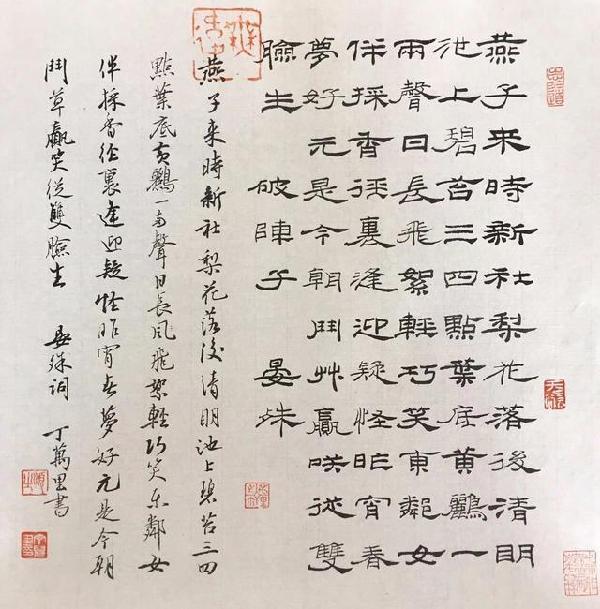 燕子来時新社梨花落後清明
池上碧苔三四點葉底黃鸝一
兩聲日長飛絮輕巧笑東鄰女
伴採香徑裏逢迎疑怪昨宵春
夢好元是今朝鬥艸贏咲從雙
臉生 破陣子 晏殊
燕子来時新社梨花落後清明池上碧苔三四
點葉底黄鸝一兩聲日長風飛絮輕巧笑东鄰女
伴採香徑裏逢迎疑怪昨宵春夢好元是今朝
鬥草贏笑從雙臉生 晏殊词 丁萬里書